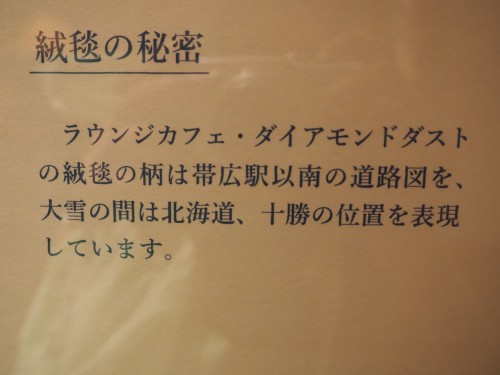 絨毯の秘密
ラウンジカフェ・ダイアモンドダスト
の絨毯の柄は帯広駅以南の道路図を、
大雪の間は北海道、十勝の位置を表現
しています。